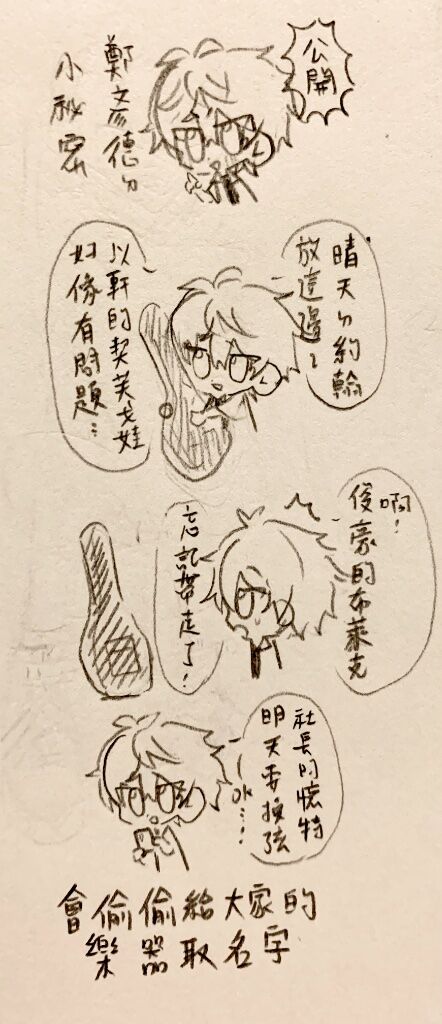 公開
鄭彥德ㄉ
小秘密
晴天ㄉ約翰
放這邊～
以軒的契芙戈娃
好像有問題…
啊！
俊豪的布萊克
忘記帶走了！
社長的懷特
明天要換弦
ok…！
會偷偷給大家的
樂器取名字